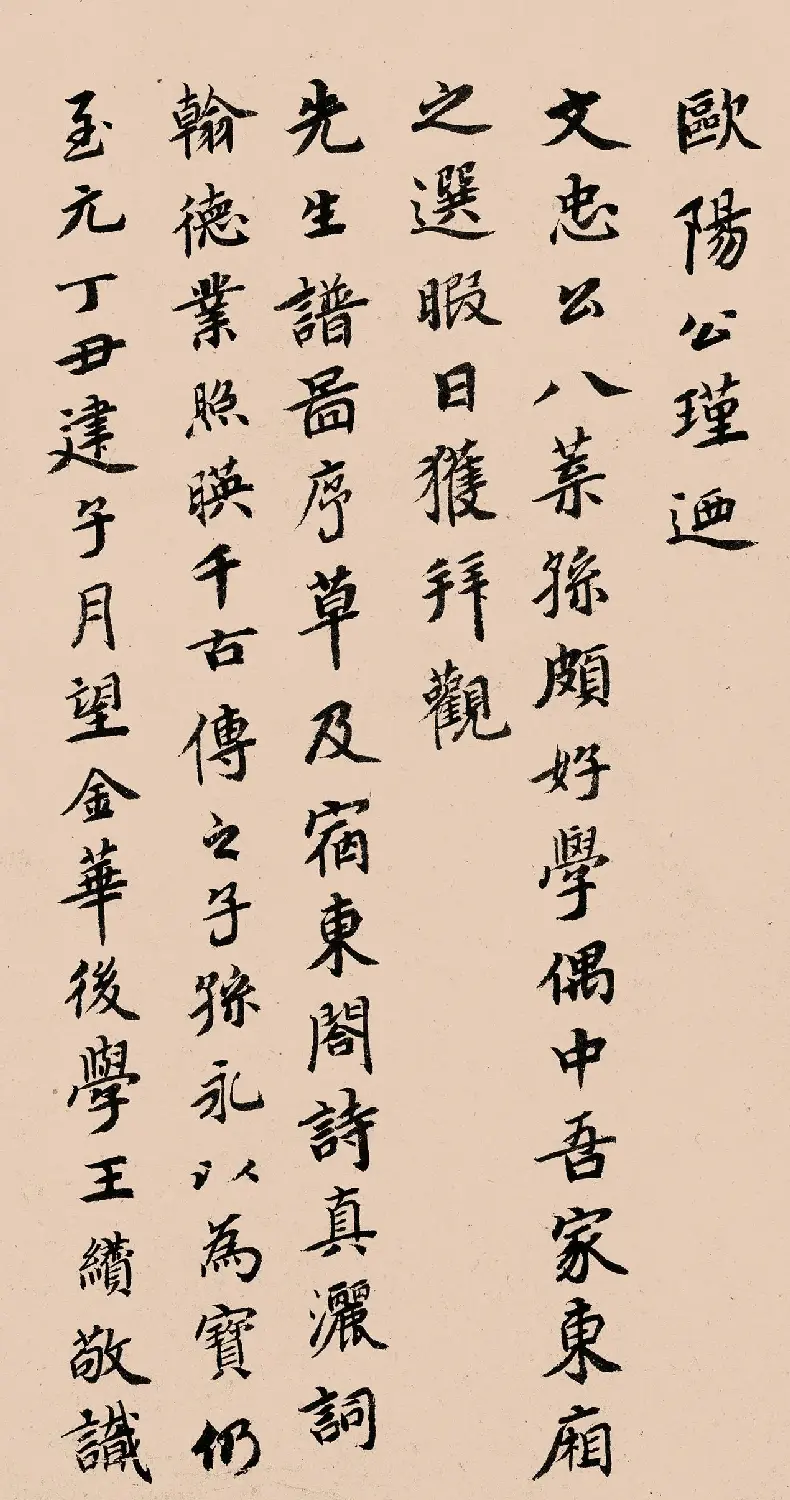 歐陽公瑾迺
文忠公八葉孫頗好學偶中吾家東廂
之選暇日獲拜觀
先生譜啚序草及宿東閣詩真灑詞
翰德業照暎千古傳之子孫永以為寶仍
至元丁丑建子月望金華後學王繢敬識